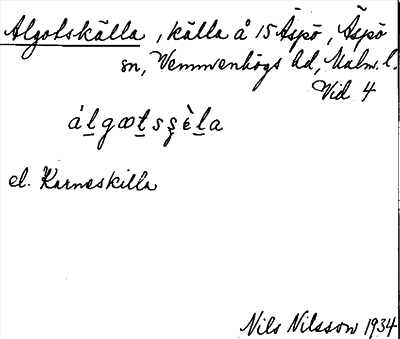 Algotskälla, källa å 15 Äspö, Äspö
sn, Vemmenhögs hd, Malm. l.
Vid 4
álgœtsʂèla
el. Karneskilla
Nils Nilsson 1934